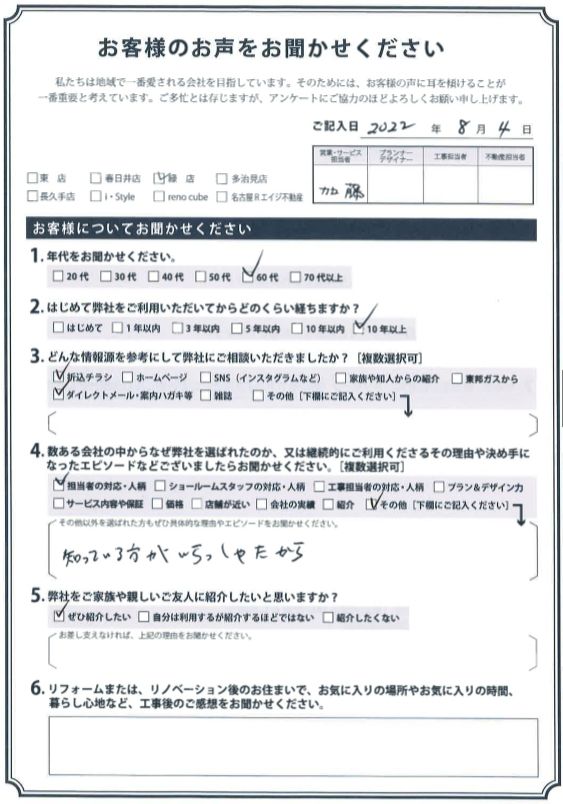 お客様のお声をお聞かせください
私たちは地域で一番愛される会社を目指しています。そのためには、お客様の声に耳を傾けることが
一番重要と考えています。ご多忙とは存じますが、アンケートにご協力のほどよろしくお願い申し上げます。
ご記入日 2022 年 8 月 4 日
営業・サービス担当者 プランナーデザイナー 工事担当者 不動産担当者
加藤
□東 店 □春日井店 ☑緑 店 □多治見店
□長久手店 □i・Style □reno cube □名古屋Rエイジ不動産
お客様についてお聞かせください
1. 年代をお聞かせください。
□20代 □30代 □40代 □50代 ☑60代 □70代以上
2. はじめて弊社をご利用いただいてからどのくらい経ちますか?
□はじめて □1年以内 □3年以内 □5年以内 □10年以内 ☑10年以上
3. どんな情報源を参考にして弊社にご相談いただきましたか?[複数選択可]
☑折込チラシ □ホームページ □SNS(インスタグラムなど) □家族や知人からの紹介 □東邦ガスから
☑ダイレクトメール・案内ハガキ等 □雑誌 □その他[下欄にご記入ください]
4. 数ある会社の中からなぜ弊社を選ばれたのか、又は継続的にご利用くださるその理由や決め手に
なったエピソードなどございましたらお聞かせください。[複数選択可]
☑担当者の対応・人柄 □ショールームスタッフの対応・人柄 □工事担当者の対応・人柄 □プラン&デザイン力
□サービス内容や保証 □価格 □店舗が近い □会社の実績 □紹介 ☑その他[下欄にご記入ください]
その他以外を選ばれた方もぜひ具体的な理由やエピソードをお聞かせください。
知っている方がいらっしゃたから
5. 弊社をご家族や親しいご友人に紹介したいと思いますか?
☑ぜひ紹介したい □自分は利用するが紹介するほどではない □紹介したくない
お差し支えなければ、上記の理由をお聞かせください。
6. リフォームまたは、リノベーション後のお住まいで、お気に入りの場所やお気に入りの時間、
暮らし心地など、工事後のご感想をお聞かせください。